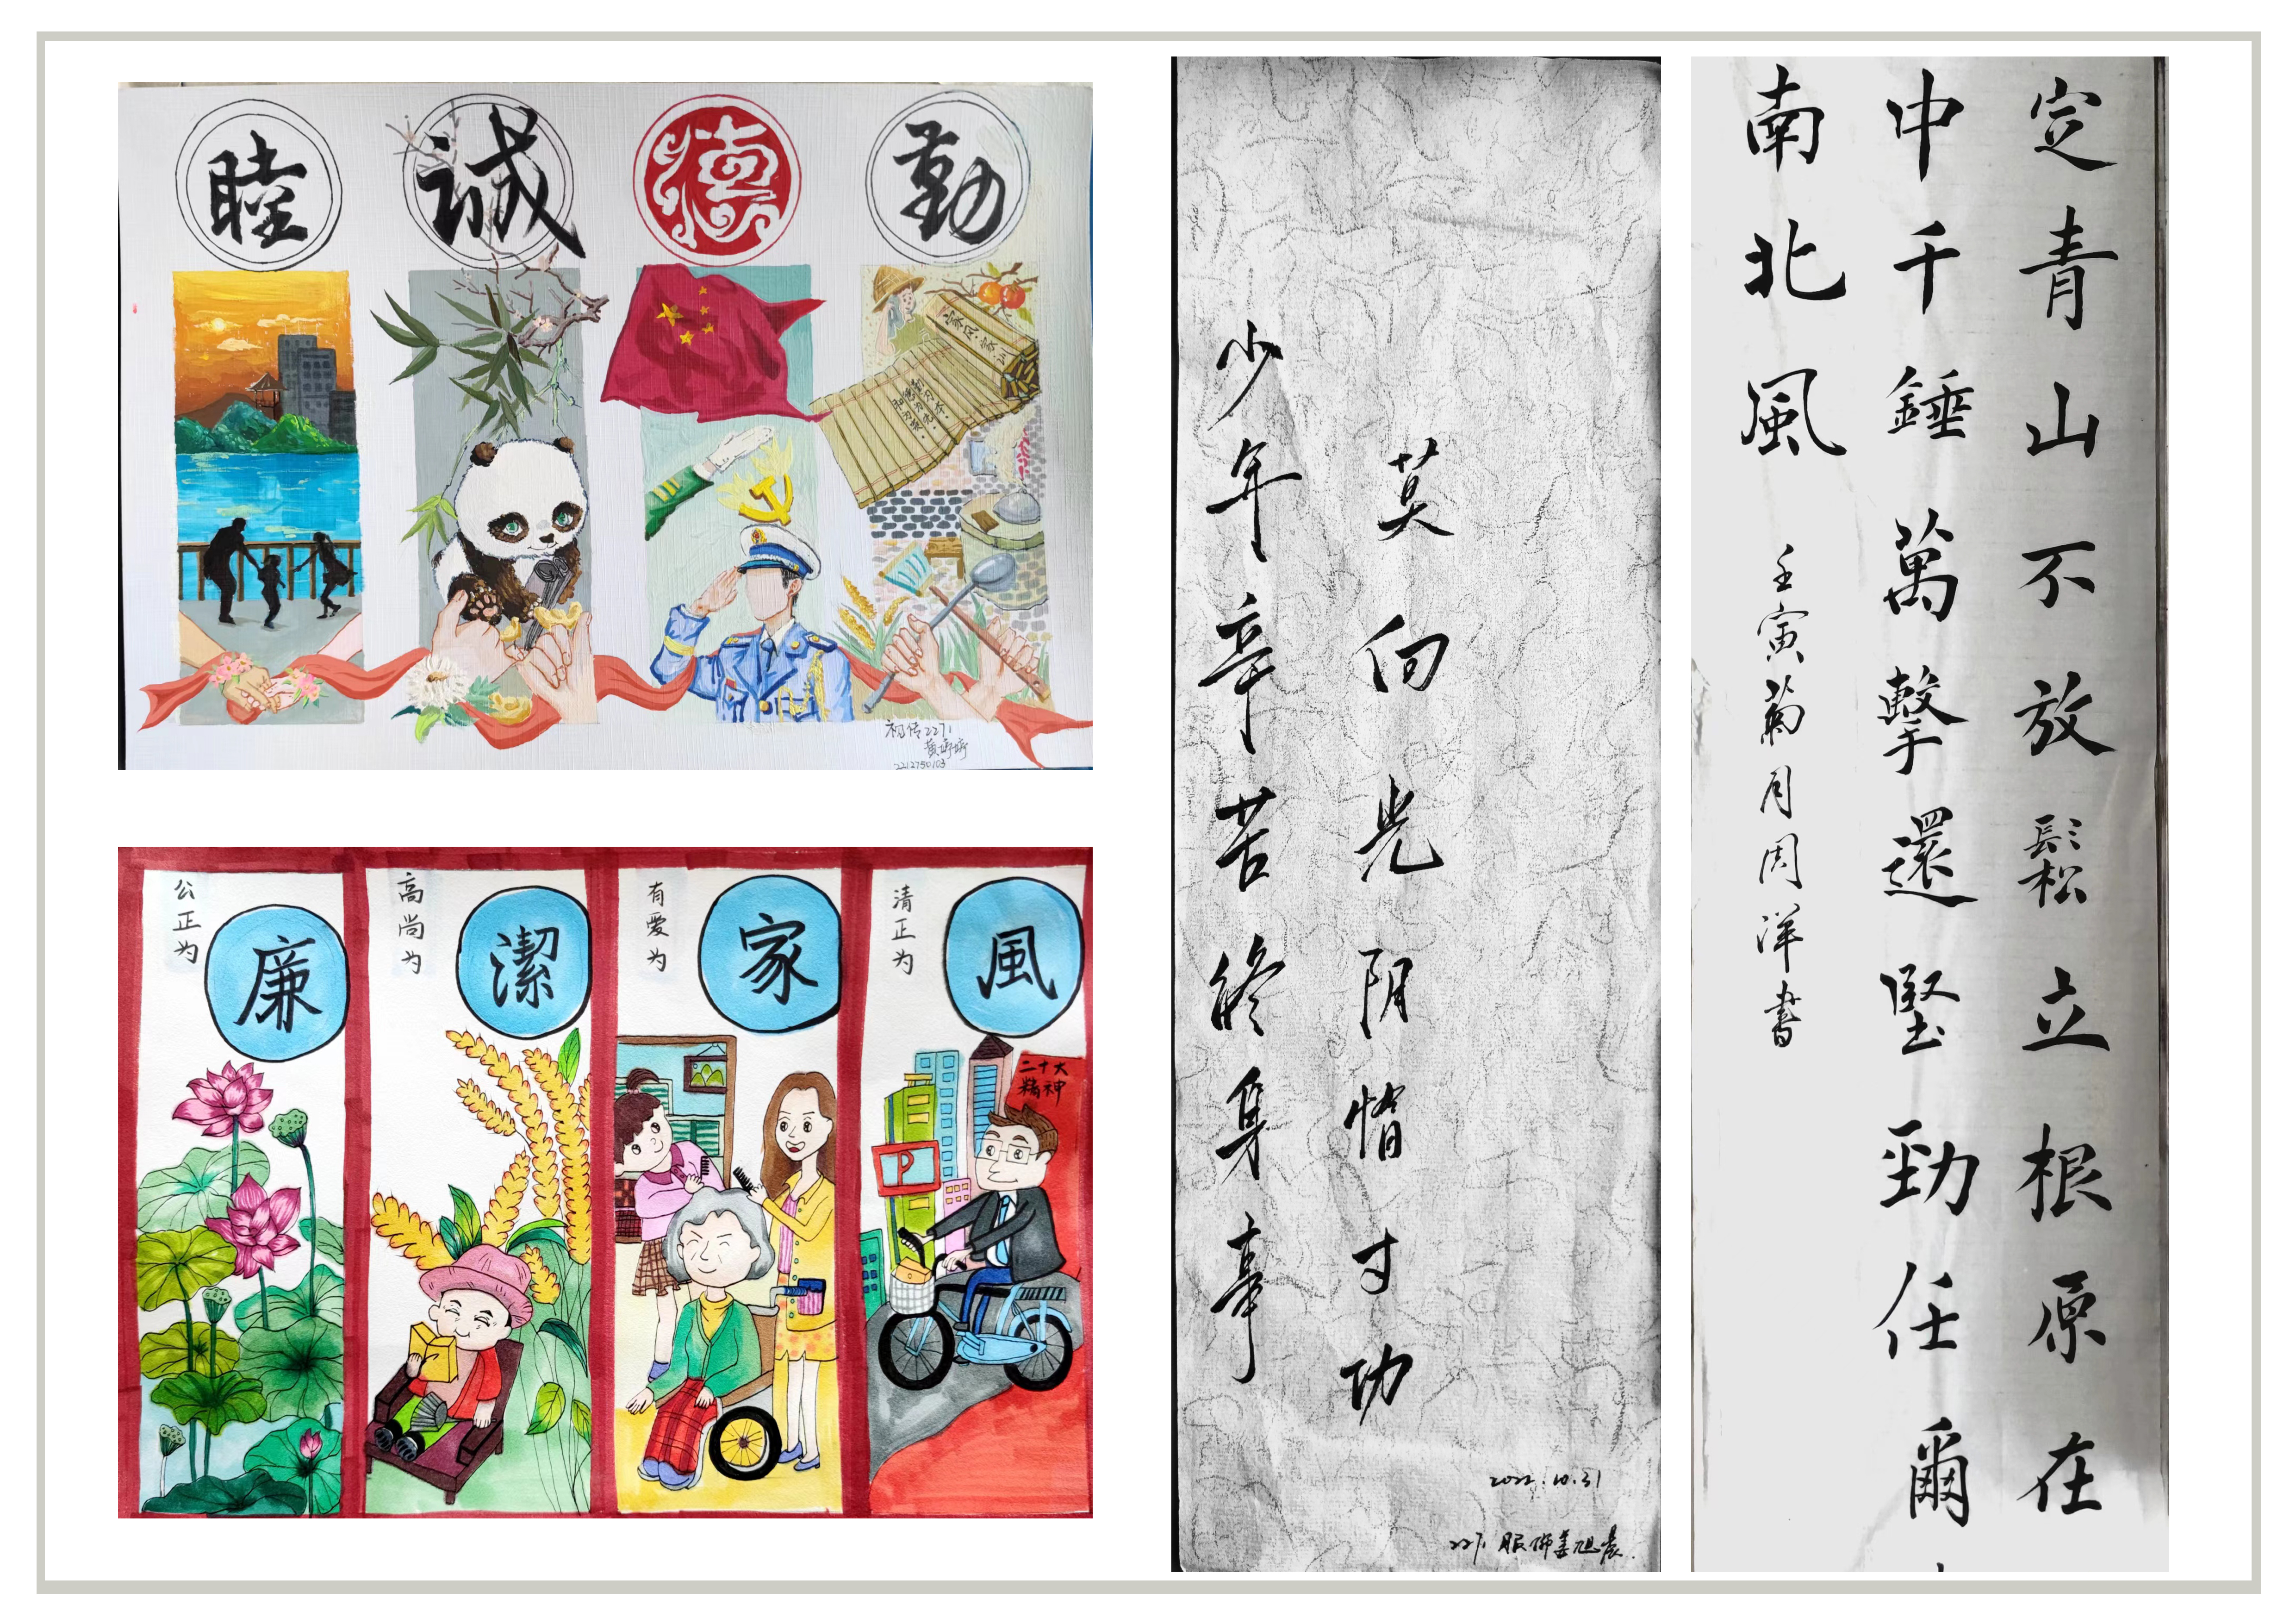 睦
诚
德
勤
家风·家训
2212750103
公正为
廉
高尚为
潔
有爱为
家
清正为
風
二十大
精神
P
少年辛苦終身事
莫向光阴惰寸功
2022.10.31
2271 服饰姜旭晨
定青山不放鬆立根原在
中千錘萬擊還堅勁任爾
南北風
壬寅菊月周洋書